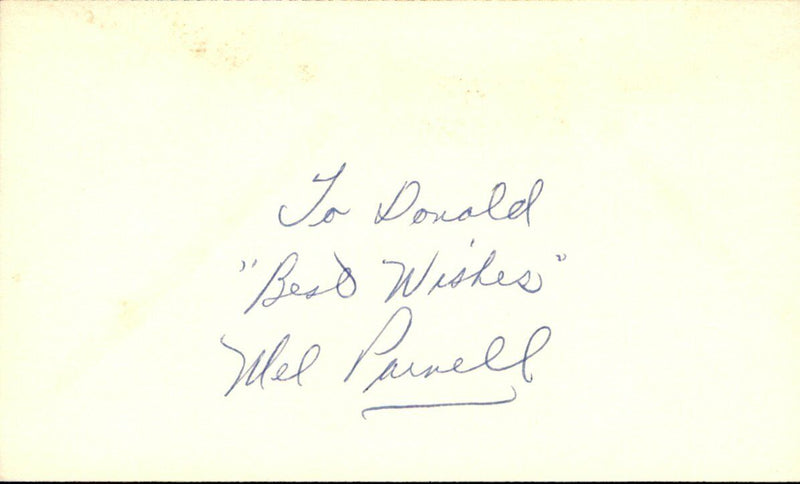 To Donald
"Best Wishes"
Mel Parnell